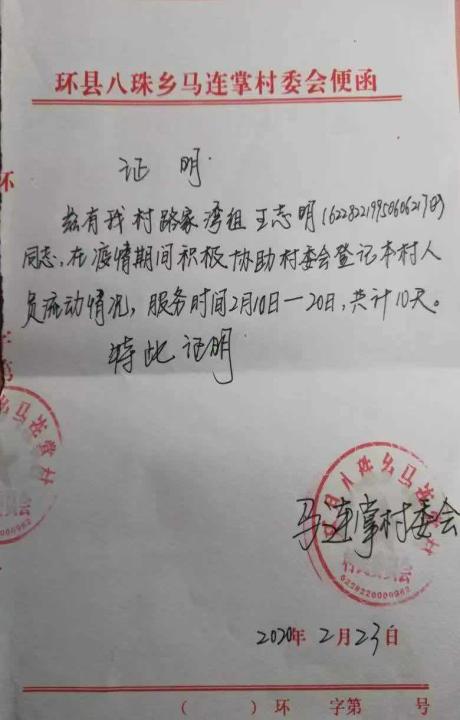 环县八珠乡马连掌村委会便函
证明
兹有我村路家湾组王志明(622822199506062170)
同志,在疫情期间积极协助村委会登记本村人
员流动情况,服务时间2月10日—20日,共计10天。
特此证明
马连掌村委会
2020年2月23日
( )环 字第 号